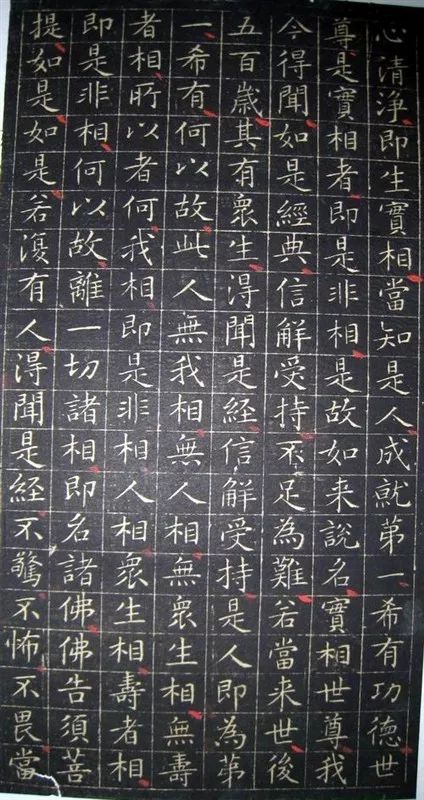 心清淨即生實相當知是人成就第一希有功德世
尊是實相者即是非相是故如来說名實相世尊我
今得聞如是經典信解受持不足為難若當来世後
五百歲其有眾生得聞是經信解受持是人即為第
一希有何以故此人無我相無人相無眾生相無壽
者相所以者何我相即是非相人相眾生相壽者相
即是非相何以故離一切諸相即名諸佛佛告須菩
提如是如是若復有人得聞是經不驚不怖不畏當